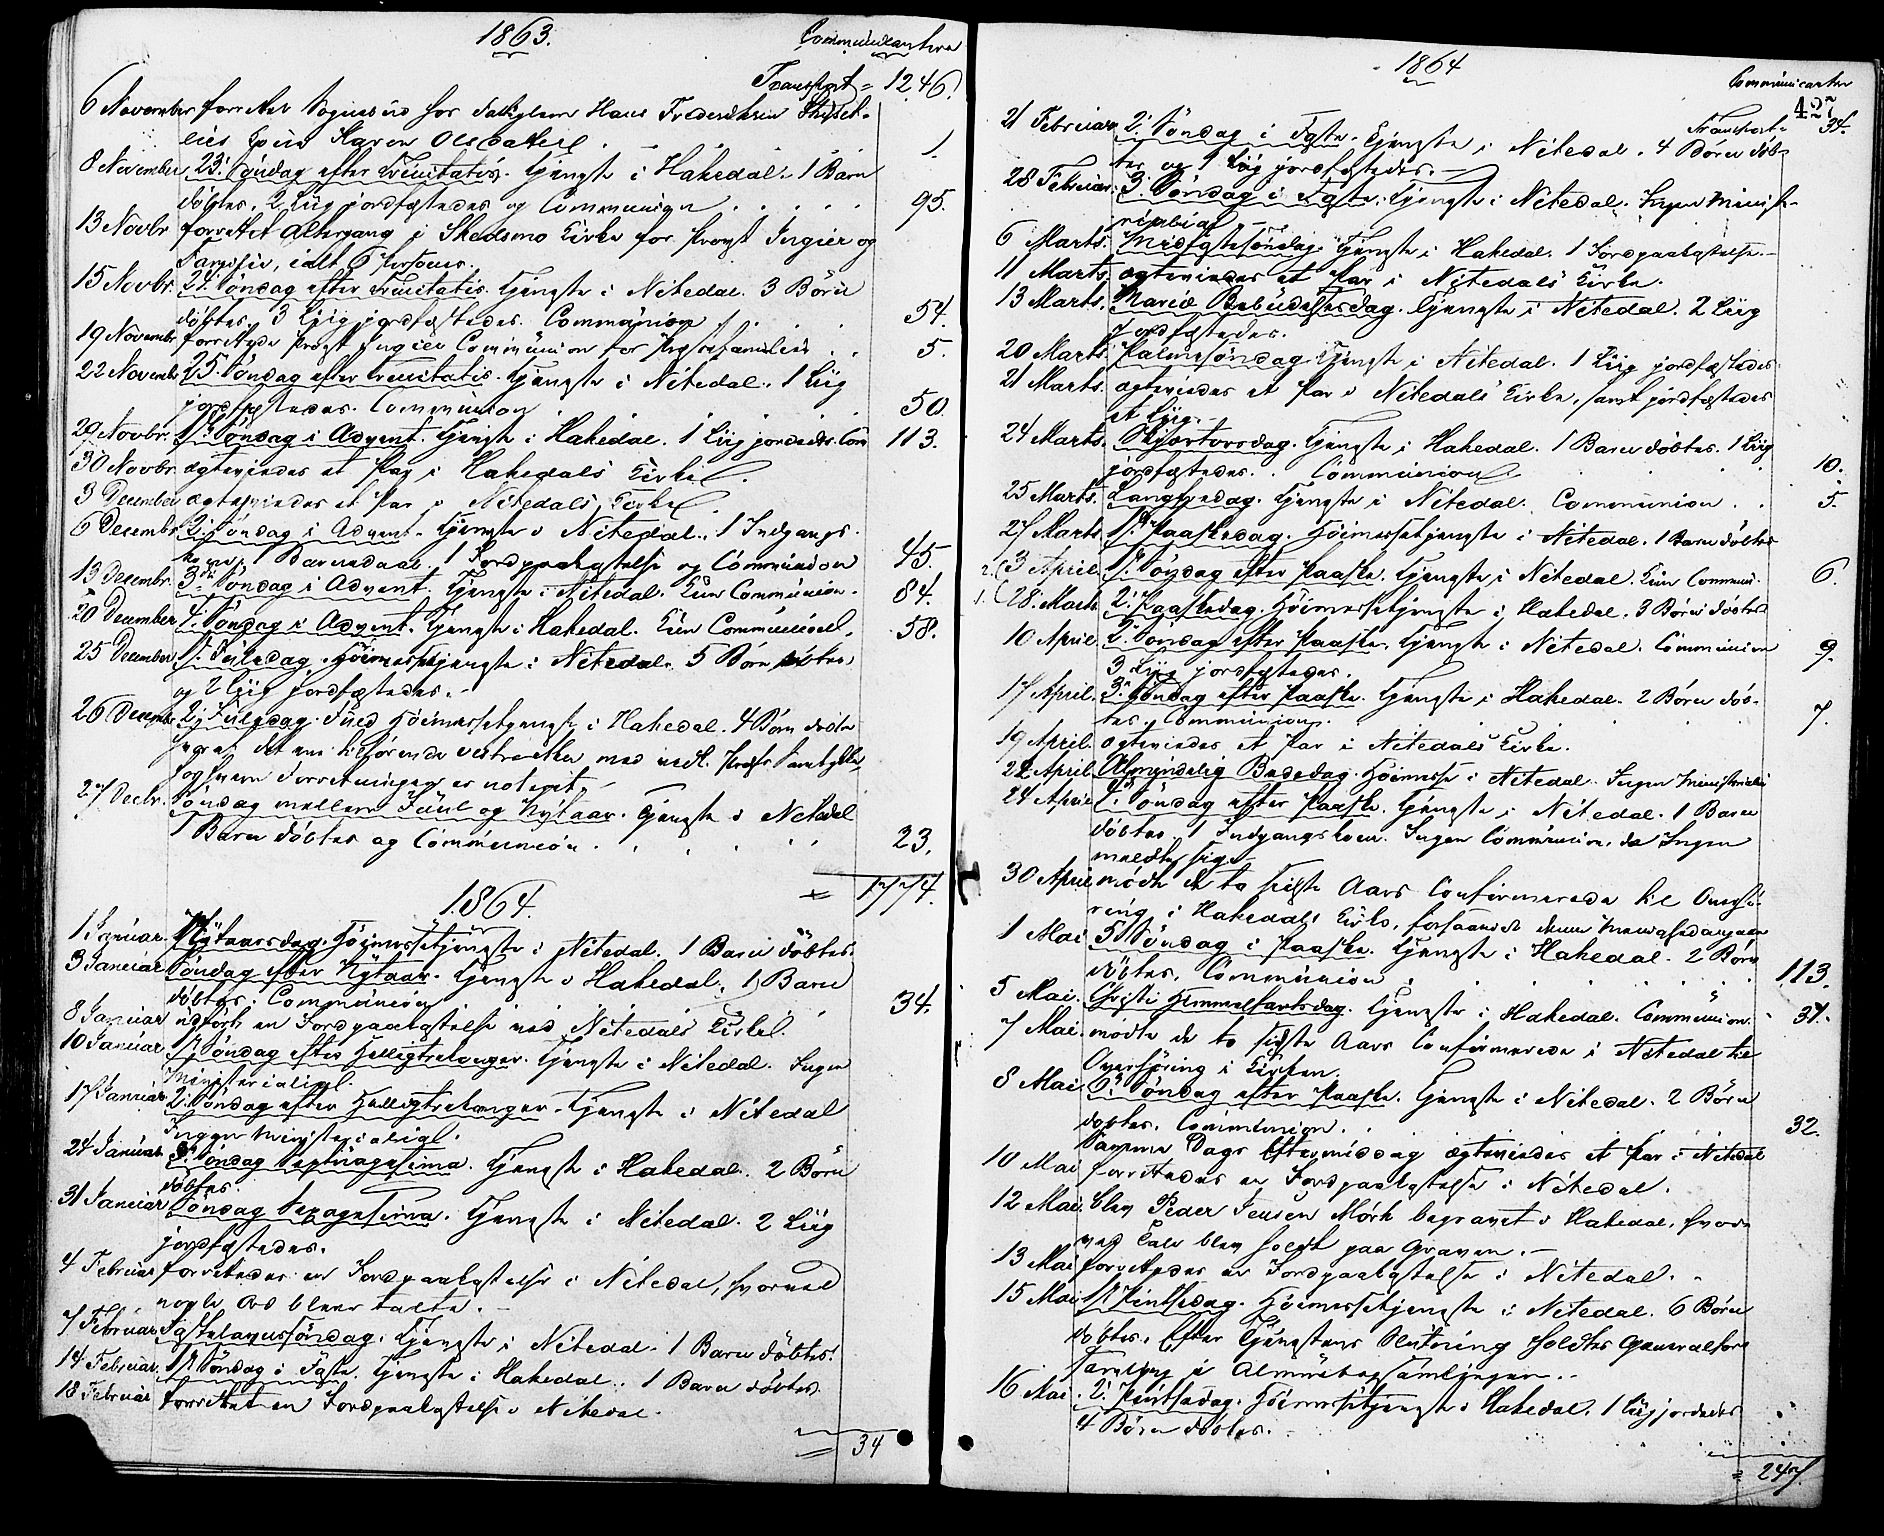 1863.
Communicantere
Transport = 1246.
6 November forrettet Sognebud hos Hans Frederiksen
Karen Olsdatter. 1.
8 November 23. Söndag efter Trinitatis. Tjeneste i Hakedal. 1 Barn
döbtes. 2 Liig jordfæstedes og Communion . . . . . 95.
13 Novbr forrettet Altergang i Skedsmo Kirke for Provst Ingier og
Familie, ialt 6 Personer.
15 Novbr. 24. Söndag efter Trinitatis. Tjeneste i Nitedal. 3 Börn
döbtes. 3 Liig jordfæstedes. Communion . . . . 54.
19 Novembr forrettede Provst Ingier Communion for Præstefamilien . . 5.
22 Novembr 25. Söndag efter Trinitatis. Tjeneste i Nitedal. 1 Liig
jordfæstedes. Communion . . . . 50.
29 Novbr. 1ste Söndag i Advent. Tjeneste i Hakedal. 1 Liig jordfæstedes. Com 113.
30 Novbr. ægteviedes et Par i Hakedals Kirke.
3 December ægteviedes et Par i Nitedals Kirke.
6 Decembr. 2. Söndag i Advent. Tjeneste i Nitedal. 1 Indgangs-
kone, 1 Barnedaab. 1 Jordpaakastelse og Communion 45.
13 Decembr. 3die Söndag i Advent. Tjeneste i Nitedal. Kun Communion. 84.
20 December 4. Söndag i Advent. Tjeneste i Hakedal. Kun Communion. 58.
25 December 1ste Juledag. Höimessetjeneste i Nitedal. 5 Börn döbtes,
og 2 Liig jordfæstedes.
26 Decembr 2. Juledag. Höimessetjeneste i Hakedal. 4 Börn döbte
Forretningen er noteret.
27 Decbr. Söndag mellem Juul og Nytaar. Tjeneste i Nitedal
1 Barn döbtes og Communion . . . . . 23.
= 1774.
1864.
1 Januar. Nytaarsdag. Höimessetjeneste i Nitedal. 1 Barn döbtes.
3 Januar Söndag efter Nytaar. Tjeneste i Hakedal. 1 Barn
döbtes. Communion . . . . 34.
8 Januar udfört en Jordpaakastelse ved Nitedals Kirke.
10 Januar. 1ste Söndag efter Helligtrekonger. Tjeneste i Nitedal. Ingen
Ministerialial.
17 Januar 2. Söndag efter Helligtrekonger. Tjeneste i Nitedal
Ingen Ministerialial.
24 Januar Söndag Septuagesima. Tjeneste i Hakedal. 2 Börn
döbtes.
31 Januar Söndag Sexagesima. Tjeneste i Nitedal. 2 Liig
jordfæstedes.
4 Februar forrettedes en Jordpaakastelse i Nitedal, hvorved
nogle Ord bleve talte.
7 Februar Fastelavnssöndag. Tjeneste i Nitedal. 1 Barn döbtes.
14 Februar. 1ste Söndag i Faste. Tjeneste i Hakedal. 1 Barn döbtes.
18 Februar forrettet en Jordpaakastelse i Nitedal.
= 34
1864
Communicanter
427
Transport = 34.
21 Februar 2. Söndag i Faste. Tjeneste i Nitedal. 4 Börn döb-
tes og 1 Liig jordfæstedes.
28 Februar. 3. Söndag i Faste. Tjeneste i Nitedal. Ingen Ministe-
rialial
6 Marts. Midfastesöndag. Tjeneste i Hakedal. 1 Jordpaakastelse.
11 Marts. ægteviedes et Par i Nitedals Kirke.
13 Marts. Mariæ Bebudelsesdag. Tjeneste i Nitedal. 2 Liig
jordfæstedes.
20 Marts. Palmesöndag. Tjeneste i Nitedal. 1 Liig jordfæstedes.
21 Marts. ægteviedes et Par i Nitedals Kirke, samt jordfæstedes
et Liig.
24 Marts. Skjærtorsdag. Tjeneste i Hakedal. 1 Barn döbtes. 1 Liig
jordfæstedes. Communion . . . 10.
25 Marts. Langfredag. Tjeneste i Nitedal. Communion . . 5.
27 Marts. 1ste Paaskedag. Höimessetjeneste i Nitedal. 1 Barn döbtes
2. 3 April. 1ste Söndag efter Paaske. Tjeneste i Nitedal. Kun Commun. 6.
1. 28. Marts. 2. Paaskedag. Höimessetjeneste i Hakedal. 3 Börn döbtes
10 April. 2. Söndag efter Paaske. Tjeneste i Nitedal. Communion 9.
3 Liig jordfæstedes.
17 April. 3. Söndag efter Paaske. Tjeneste i Hakedal. 2 Börn döb-
tes. Communion. 7.
19 April. ægteviedes et Par i Nitedals Kirke.
22 April. Almindelig Bededag. Höimesse i Nitedal. Ingen Ministeriali
24 April 4. Söndag efter Paaske. Tjeneste i Nitedal. 1 Barn
döbtes. 1 Indgangskone. Ingen Communion, da Ingen
meldte sig.
30 April mödte de to sidste Aars Confirmerede til Overhö-
ring i Hakedals Kirke,
1 Mai 5. Söndag i Paaske. Tjeneste i Hakedal. 2 Börn
döbtes. Communion . . . . . 113.
5 Mai. Christi Himmelfartsdag. Tjeneste i Hakedal. Communion. 37.
7 Mai. mödte de to sidste Aars Confirmerede i Nitedal til
Overhöring i Kirken.
8 Mai. 6. Söndag efter Paaske. Tjeneste i Nitedal. 2 Börn
döbtes. Communion . . . . . 32.
Samme Dags Eftermiddag ægteviedes et Par i Nitedal
10 Mai forrettedes en Jordpaakastelse i Nitedal.
12 Mai. blev Peder Jensen Mörk begravet i Hakedal, hvor-
ved Tale blev holdt paa Graven.
13 Mai forrettedes en Jordpaakastelse i Nitedal.
15 Mai 1ste Pintsedag. Höimessetjeneste i Nitedal. 6 Börn
döbtes. Efter Tjenestens Slutning holdtes Generalfor-
samling i Almuebogsamlingen.
16 Mai. 2. Pintsedag. Höimessetjeneste i Hakedal. 1 Liig jordfæstedes
4 Börn döbtes.
= 247.